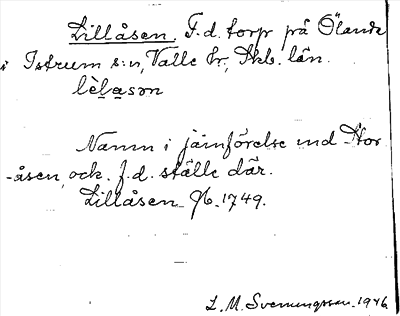 Lillåsen. F.d. torp på Öland
i Istrum s:n, Valle hr, Skb. län.
lèlasən
Namn i jämförelse med Stor
-åsen, ock. f.d. ställe där.
Lillåsen Jb. 1749.
L. M. Svenungsson. 1946